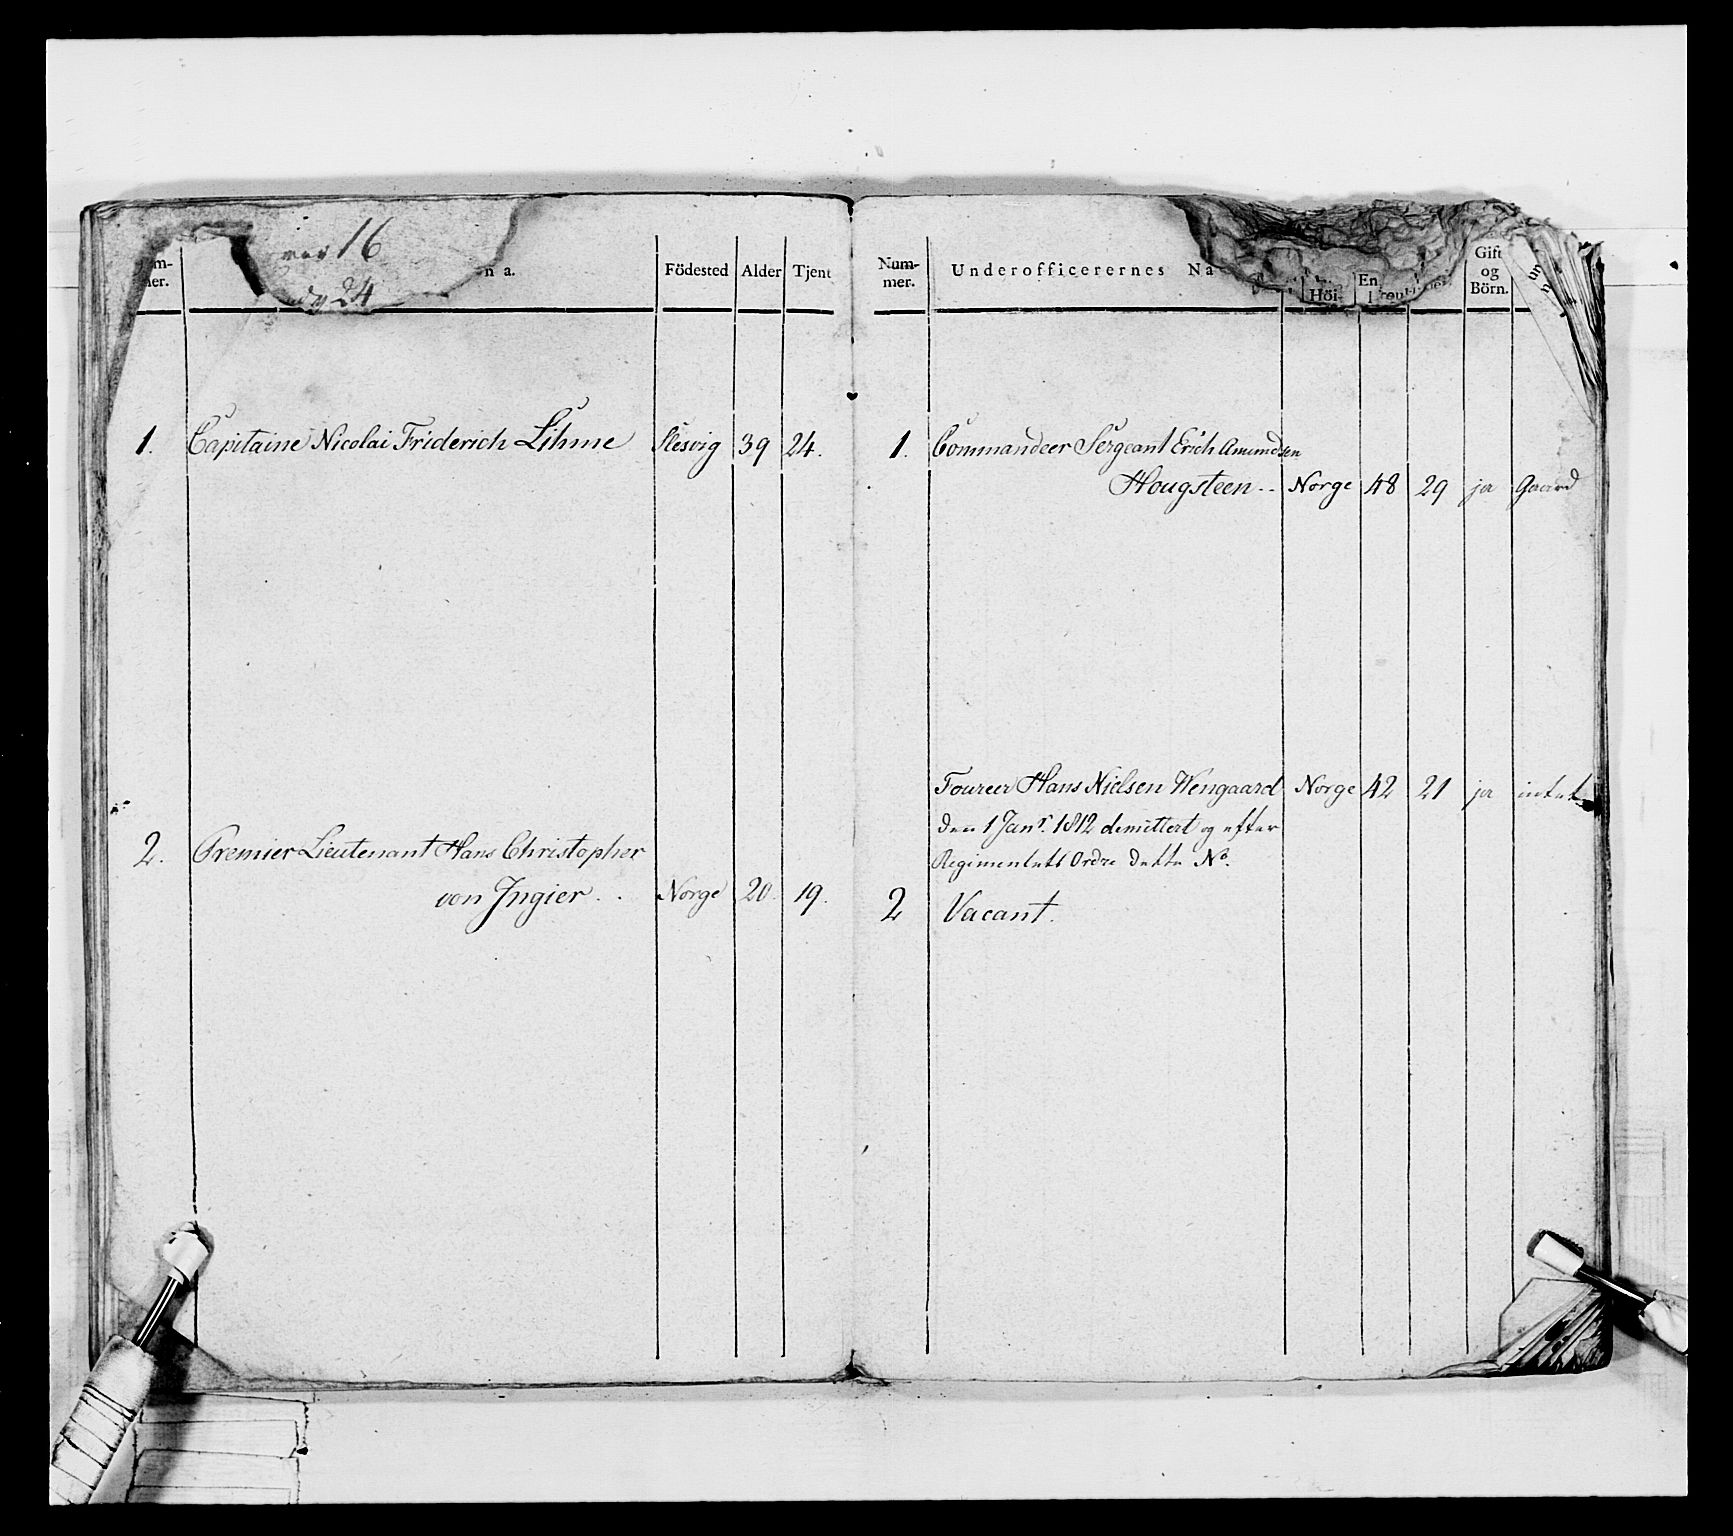 16
24
n a.
Födested Alder Tjent
1. Capitaine Nicolai Friderich Lihme Slesvig 39 24.
2. Premier Lieutenant Hans Christopher
von Ingier . . Norge 20. 19.
Num-
mer.
Underofficerernes Na
Höi-
En
Gift
og
Börn.
1. Commandeer Sergeant Erich Amundsen
Hougsteen - - Norge 48 29 ja Gaard
Foureer Hans Nielsen Wengaard Norge 42 21 ja intet
den 1 Janr. 1812 demittert og efter
Regimentets Ordre dette No.
2 Vacant.